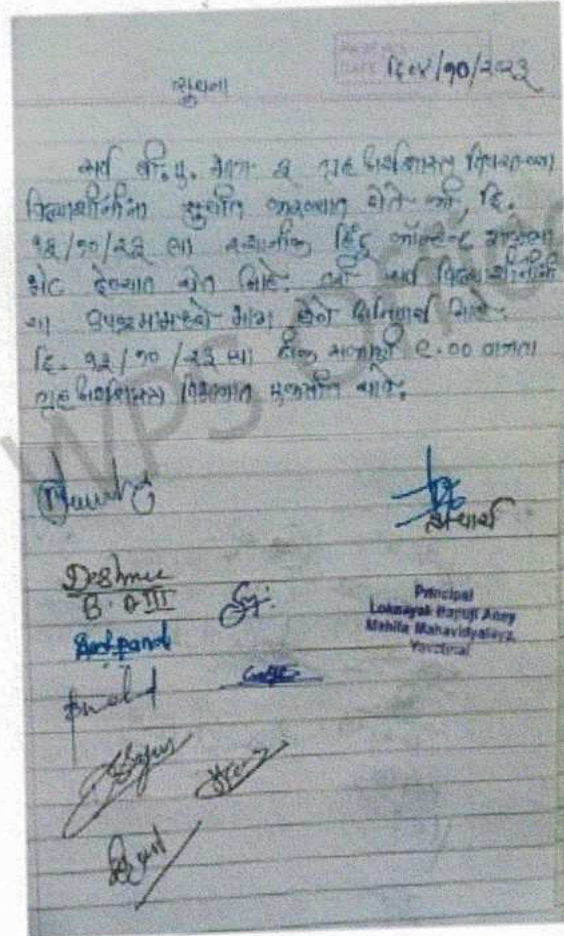 दि.०४/१०/२०२३
सूचना
सर्व बी.ए. भाग ३ गृहअर्थशास्त्र विषयाच्या
विद्यार्थीनींना सुचीत करण्यात येते की, दि.
१३/१०/२३ ला स्थानीक हिंदू कॉन्व्हेन्ट शाळेला
भेट देण्यात येत आहे. तरी सर्व विद्यार्थीनींनी
या उपक्रमामध्ये भाग घेणे अनिवार्य आहे.
दि. १३/१०/२३ ला ठिक सकाळी ९.०० वाजता
गृहअर्थशास्त्र विभागात एकत्रीत यावे.
प्राचार्य
B.A III
Principal
Loknayak Bapuji Aney
Mahila Mahavidyalaya,
Yavatmal
WPS Office